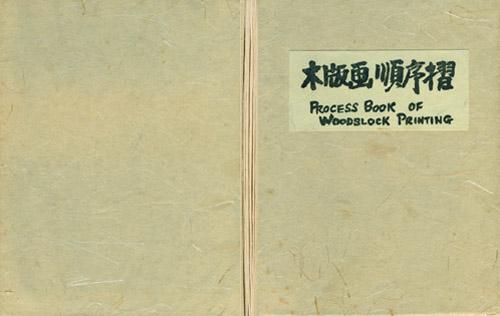 木版画順序摺
PROCESS BOOK OF
WOODBLOCK PRINTING